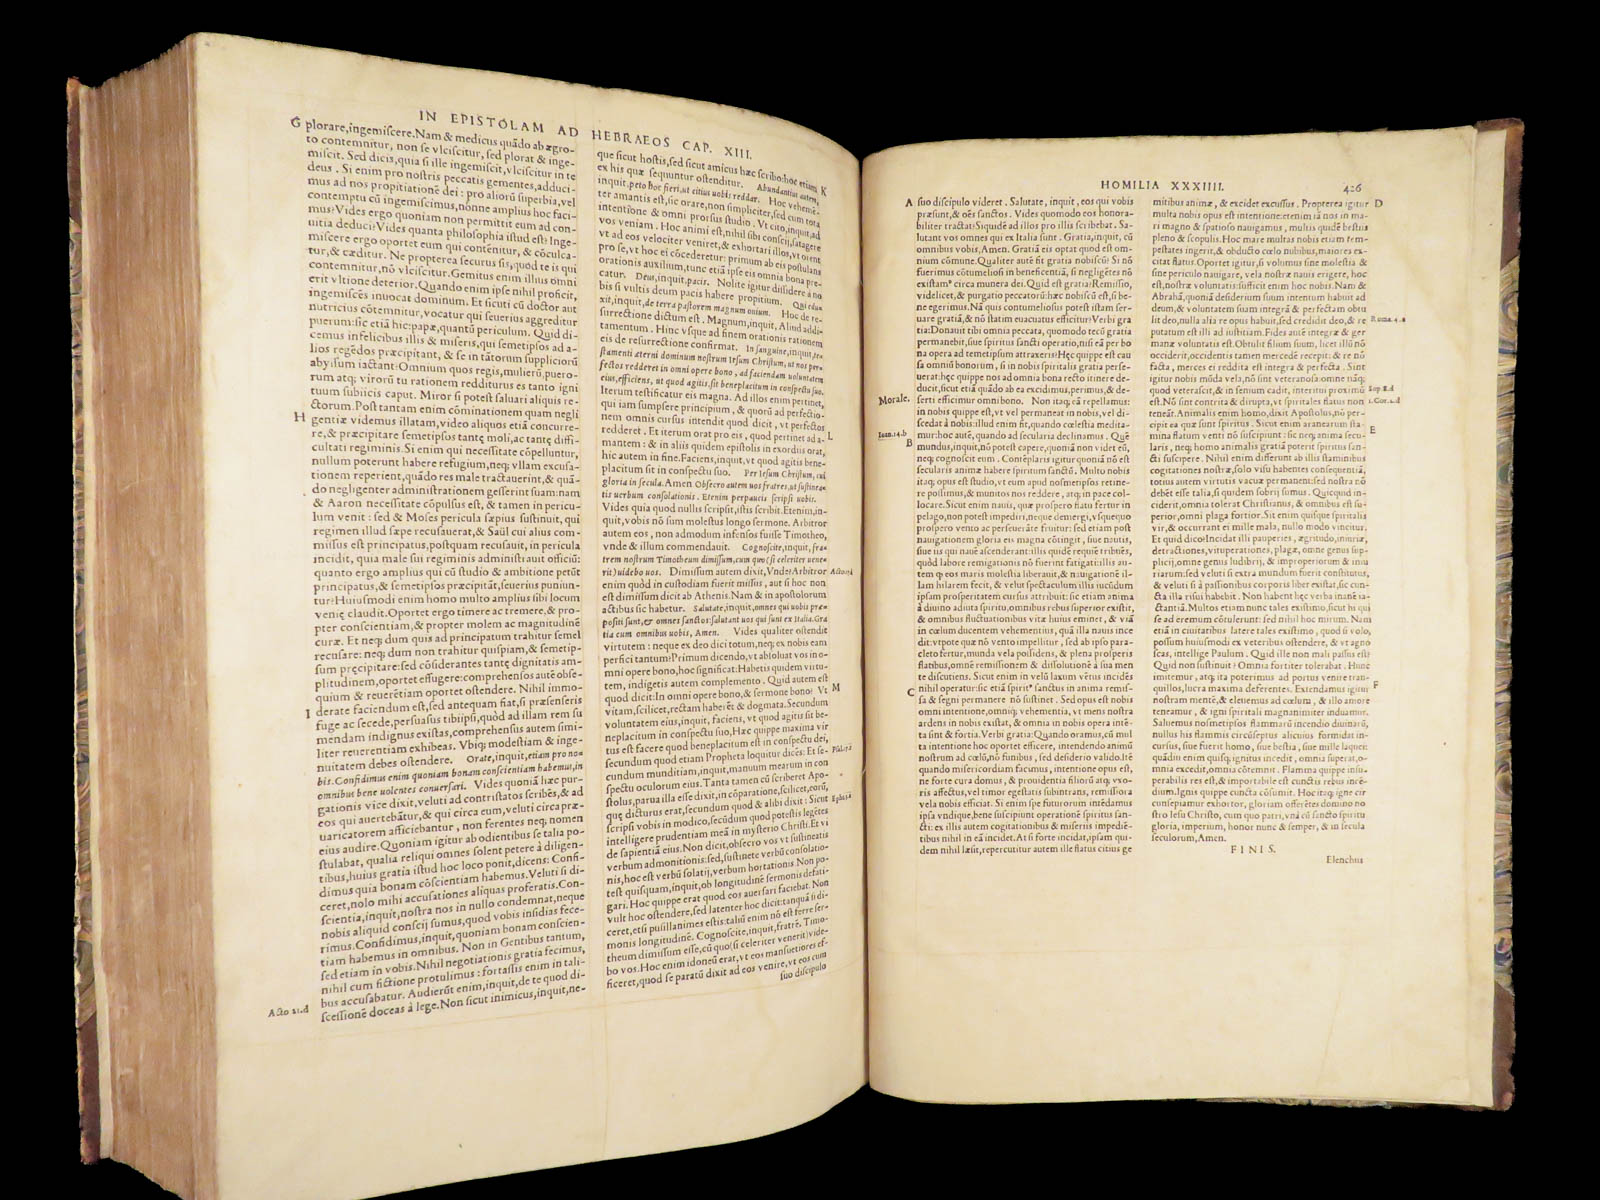 IN EPISTOLAM AD HEBRAEOS CAP. XIII.
G plorare,ingemiſcere.Nam & medicus quãdo ab ægro-
to contemnitur, non ſe vlciſcitur, ſed plorat & inge-
miſcit. Sed dicis,quia ſi ille ingemiſcit,vlciſcitur in te
deus. Si enim pro noſtris peccatis gementes,adduci-
mus ad nos propitiationẽ dei: pro aliorũ ſuperbia,vel
contemptu cũ ingemiſcimus,nónne amplius hoc faci-
mus? Vides ergo quoniam non permittit eum ad con-
uitia deduci? Vides quanta philoſophia iſtud eſt? Inge-
miſcere ergo oportet eum qui contẽnitur, & cõculca-
tur,& cæditur. Ne propterea ſecurus ſis,quòd te is qui
contemnitur,nõ vlciſcitur.Gemitus enim illius omni
erit vltione deterior.Quando enim ipſe nihil proficit,
ingemiſcẽs inuocat dominum. Et ſicuti cũ doctor aut
nutricius cõtemnitur,vocatur qui ſeuerius aggreditur
puerum:ſic etiã hic:papæ,quantũ periculum. Quid di-
cemus infelicibus illis & miſeris,qui ſemetipſos ad a-
lios regẽdos præcipitant, & ſe in tãtorum ſuppliciorũ
abyſſum iactant?Omnium quos regis,mulierũ,puero-
rum atq; virorũ tu rationem redditurus es tanto igni
tuum ſubiicis caput. Miror ſi poteſt ſaluari aliquis re-
ctorum.Poſt tantam enim cõminationem quam negli
H gentiæ videmus illatam,video aliquos etiã concurre-
re,& præcipitare ſemetipſos tantę moli,ac tantę diffi-
cultati regiminis.Si enim qui neceſſitate cõpelluntur,
nullum poterunt habere refugium,neq; vllam excuſa-
tionem reperient,quãdo res male tractauerint,& quã-
do negligenter adminiſtrationem geſſerint ſuam:nam
& Aaron neceſſitate cõpulſus eſt, & tamen in pericu-
lum venit: ſed & Moſes pericula ſæpius ſuſtinuit, qui
regimen illud ſæpe recuſauerat,& Saül cui alius com-
miſſus eſt principatus,poſtquam recuſauit,in pericula
incidit, quia male ſui regiminis adminiſtrauit officiũ:
quanto ergo amplius qui cũ ſtudio & ambitione petũt
principatus,& ſemetipſos præcipitãt,ſeuerius puniun-
tur?Huiuſmodi enim homo multo amplius ſibi locum
venię claudit.Oportet ergo timere ac tremere,& pro-
pter conſcientiam,& propter molem ac magnitudinẽ
curæ. Et neq; dum quis ad principatum trahitur ſemel
recuſare: neq; dum non trahitur quiſpiam,& ſemetip-
ſum pręcipitare:ſed cõſiderantes tantę dignitatis am-
plitudinem,oportet effugere:comprehenſos autẽ obſe-
quium & reuerẽtiam oportet oſtendere. Nihil immo-
I derate faciendum eſt,ſed antequam fiat,ſi præſenſeris
fuge ac ſecede,perſuaſus tibiipſi,quòd ad illam rem ſu
mendam indignus exiſtas,comprehenſus autem ſimi-
liter reuerentiam exhibeas. Vbiq; modeſtiam & inge-
nuitatem debes oſtendere. Orate,inquit,etiam pro no-
bis.Confidimus enim quoniam bonam conſcientiam habemus,in
omnibus bene uolentes conuerſari. Vides quoniã hæc pur-
gationis vice dixit,veluti ad contriſtatos ſcribẽs,& ad
eos qui auertebãtur,& qui circa eum,veluti circa præ-
uaricatorem afficiebantur, non ferentes neq; nomen
eius audire.Quoniam igitur ab odientibus ſe talia po-
ſtulabat, qualia reliqui omnes ſolent petere à diligen-
tibus,huius gratia iſtud hoc loco ponit,dicens: Confi-
dimus quia bonam cõſcientiam habemus.Veluti ſi di-
ceret,nolo mihi accuſationes aliquas proferatis.Con-
ſcientia,inquit,noſtra nos in nullo condemnat,neque
nobis aliquid conſcij ſumus,quod vobis inſidias fece-
rimus.Confidimus,inquit,quoniam bonam conſcien-
tiam habemus in omnibus. Non in Gentibus tantum,
ſed etiam in vobis.Nihil negotiationis gratia fecimus,
nihil cum fictione protulimus: fortaſſis enim in tali-
bus accuſabatur. Audierũt enim,inquit,de te quod di-
Acto 21.d ſceſſionẽ doceas à lege.Non ſicut inimicus,inquit,ne-
que ſicut hoſtis,ſed ſicut amicus hæc ſcribo:hoc etiam K
ex his quæ ſequuntur oſtenditur. Abundantius autem,
inquit,peto hoc fieri,ut citius uobis reddar. Hoc vehemẽ-
ter amantis eſt,ſic orare,non ſimpliciter,ſed cum tota
intentiõne & omni prorſus ſtudio. Vt cito,inquit,ad
vos veniam. Hoc animi eſt,nihil ſibi conſcij,ſatagere
vt ad eos velociter veniret,& exhortari illos,vt orent
pro ſe,vt hoc ei cõcederetur: primum ab eis poſtulans
orationis auxilium,tunc etiã ipſe eis omnia bona pre-
catur. Deus,inquit,pacis. Nolite igitur diſſidere à no
bis ſi vultis deum pacis habere propitium. Qui edux
xit,inquit,de terra paſtorem magnum ouium. Hoc de re-
ſurrectione dictum eſt. Magnum,inquit, Aliud addi-
tamentum. Hinc vſque ad finem orationis rationem
eis de reſurrectione confirmat. In ſanguine,inquit,te-
ſtamenti æterni dominum noſtrum Ieſum Chriſtum, ut nos per-
fectos redderet in omni opere bono, ad faciendam uoluntatem
eius,efficiens, ut quod agitis,ſit beneplacitum in conſpectu ſuo.
Iterum teſtificatur eis magna. Ad illos enim pertinet,
qui iam ſumpſere principium, & quorũ ad perfectio-
nem omnis curſus intendit quod dicit, vt perfectos
redderet. Et iterum orat pro eis, quod pertinet ad a- L
mantem: & in aliis quidem epiſtolis in exordiis orat,
hic autem in fine.Faciens,inquit,vt quod agitis bene-
placitum ſit in conſpectu ſuo. Per Ieſum Chriſtum, cui
gloria in ſecula.Amen Obſecro autem uos fratres,ut ſuſtinea-
tis uerbum conſolationis. Etenim perpaucis ſcripſi uobis.
Vides quia quod nullis ſcripſit,iſtis ſcribit.Etenim,in-
quit,vobis nõ ſum moleſtus longo ſermone. Arbitror
autem eos, non admodum infenſos fuiſſe Timotheo,
vnde & illum commendauit. Cognoſcite,inquit,fra-
trem noſtrum Timotheum dimiſſum,cum quo(ſi celeriter uene
rit)uidebo uos. Dimiſſum autem dixit,Vnde?Arbitror
enim quòd in cuſtodiam fuerit miſſus, aut ſi hoc non
eſt dimiſſum dicit ab Athenis.Nam & in apoſtolorum
actibus ſic habetur. Salutate,inquit,omnes qui uobis præ-
poſiti ſunt,& omnes ſanctos:ſalutant uos qui ſunt ex Italia.Gra
tia cum omnibus uobis, Amen. Vides qualiter oſtendit
virtutem: neque ex deo dici totum,neq; ex nobis eam
perfici tantum?Primum dicendo,vt abſoluat vos in o-
mni opere bono,hoc ſignificat:Habetis quidem virtu-
tem, indigetis autem complemento. Quid autem eſt
quod dicit:In omni opere bono,& ſermone bono? Vt M
vitam,ſcilicet,rectam habeãt & dogmata.Secundum
voluntatem eius,inquit, faciens, vt quod agitis ſit be-
neplacitum in conſpectu ſuo,Hæc quippe maxima vir
tus eſt facere quod beneplacitum eſt in conſpectu dei,
ſecundum quod etiam Propheta loquitur dicẽs: Et ſe-
cundum munditiam,inquit,manuum mearum in con
ſpectu oculorum eius.Tanta tamen cũ ſcriberet Apo-
ſtolus,parua illa eſſe dixit,in cõparatione,ſcilicet,eorũ,
quę dicturus erat,ſecundum quod & alibi dixit: Sicut
ſcripſi vobis in modico,ſecũdum quod poteſtis legẽtes
intelligere prudentiam meã in myſterio Chriſti.Et vi
de ſapientiã eius.Non dicit,obſecro vos vt ſuſtineatis
verbum admonitionis:ſed,ſuſtinete verbũ conſolatio-
nis,hoc eſt verbũ ſolatij,verbum hortationis.Non po-
teſt quiſquam,inquit,ob longitudinẽ ſermonis defati-
gari. Hoc quippe erat quod eos auerſari faciebat. Non
vult hoc oſtendere,ſed latenter hoc dicit:tanquã ſi di-
ceret,etſi puſillanimes eſtis:taliũ enim nõ eſt ferre ſer-
monis longitudinẽ. Cognoſcite,inquit,fratrẽ, Timo-
theum dimiſſum eſſe,cũ quo(ſi celeriter venerit)vide-
bo vos.Hoc enim idoneũ erat,vt eos manſuetiores ef-
ficeret,quod ſe paratũ dixit ad eos venire,vt eos cum
ſuo diſcipulo
HOMILIA XXXIIII. 426
A ſuo diſcipulo videret. Salutate, inquit, eos qui vobis
præſunt,& oẽs ſanctos. Vides quomodo eos honora-
biliter tractat?Siquidẽ ad illos pro illis ſcribebat. Sa-
lutant vos omnes qui ex Italia ſunt. Gratia,inquit, cũ
omnibus vobis,Amen. Gratiã eis optat quod eſt om-
nium cõmune.Qualiter autẽ fit gratia nobiſcũ? Si nõ
fuerimus cõtumelioſi in beneficentiã, ſi negligẽtes nõ
exiſtamꝰ circa munera dei.Quid eſt gratia?Remiſſio,
videlicet,& purgatio peccatorũ:hæc nobiſcũ eſt,ſi be-
ne egerimus. Nã quis contumelioſus poteſt iſtam ſer-
uare gratiã,& nõ ſtatim euacuatus efficitur?Verbi gra
tia:Donauit tibi omnia peccata, quomodo tecũ gratia
permanebit,ſiue ſpiritus ſancti operatio,niſi eã per bo
na opera ad temetipſum attraxeris?Hęc quippe eſt cau
ſa omniũ bonorum, ſi in nobis ſpiritalis gratia perſe-
uerat:hęc quippe nos ad omnia bona recto itinere de-
ducit,ſicut etiã quãdo ab ea excidimus,perimus,& de-
Morale. ſerti efficimur omni bono. Non itaq; eã repellamus:
in nobis quippe eſt,vt vel permaneat in nobis,vel di-
ſcedat à nobis:illud enim fit,quando cœleſtia medita-
Ioan.14.b mur:hoc autẽ, quando ad ſecularia declinamus. Quẽ
B mundus,inquit,nõ poteſt capere,quoniã non videt eũ,
neq; cognoſcit eum. Contẽplaris igitur quoniã nõ eſt
ſecularis animæ habere ſpiritum ſanctũ. Multo nobis
itaq; opus eſt ſtudio, vt eum apud noſmetipſos retine-
re poſſimus,& munitos nos reddere, atq; in pace col-
locare.Sicut enim nauis, quæ proſpero flatu fertur in
pelago,non poteſt impediri,neque demergi,vſquequo
proſpero vento ac perſeuerãte fruitur: ſed etiam poſt
nauigationem gloria eis magna cõtingit, ſiue nautis,
ſiue iis qui nauẽ aſcenderant:illis quidẽ requiẽ tribuẽs,
quòd labore remigationis nõ fuerint fatigati:illis au-
tem qꝫ eos maris moleſtia liberauit,& nauigationẽ il-
lam hilarem fecit, & velut ſpectaculum illis iucũdum
ipſam proſperitatem curſus attribuit: ſic etiam anima
à diuino adiuta ſpiritu,omnibus rebus ſuperior exiſtit,
& omnibus fluctuationibus vitæ huius eminet, & viã
in cœlum ducentem vehementius, quã illa nauis ince
dit:vtpote quæ nõ vento impellitur, ſed ab ipſo para-
cleto fertur,munda vela poſſidens, & plena proſperis
flatibus,omnẽ remiſſionem & diſſolutionẽ à ſua men
te diſcutiens. Sicut enim in velũ laxum vẽtus incidẽs
C nihil operatur:ſic etiã ſpiritꝰ ſanctus in anima remiſ-
ſa & ſegni permanere nõ ſuſtinet. Sed opus eſt nobis
omni intentione, omniq; vehementia, vt mens noſtra
ardens in nobis exiſtat, & omnia in nobis opera intẽ-
ta ſint & fortia.Verbi gratia:Quando oramus,cũ mul
ta intentione hoc oportet efficere, intendendo animũ
noſtrum ad cœlũ,nõ funibus, ſed deſiderio valido.Itẽ
quando miſericordiam facimus, intentione opus eſt,
ne forte cura domus, & prouidentia filiorũ atq; vxo-
ris affectus,vel timor egeſtatis ſubintrans, remiſſiora
vela nobis efficiat. Si enim ſpe futurorum intẽdamus
ipſa vndique,bene ſuſcipiunt operationẽ ſpiritus ſan-
cti: ex illis autem cogitationibus & miſeriis impediẽ-
tibus nihil in eã incidet.At ſi forte incidat,ipſam qui-
dem nihil læſit,repercutitur autem ille flatus citius ge
mitibus animæ, & excidet excuſſus. Propterea igitur D
multa nobis opus eſt intentione:etenim iã nos in ma-
ri magno & ſpatioſo nauigamus, multis quidẽ beſtiis
pleno & ſcopulis. Hoc mare multas nobis etiam tem-
peſtates ingerit,& obducto cœlo nubibus,maiores ex-
citat flatus.Oportet igitur,ſi volumus ſine moleſtia &
ſine periculo nauigare, vela noſtræ nauis erigere, hoc
eſt,noſtræ voluntatis:ſufficit enim hoc nobis.Nam &
Abrahã,quoniã deſiderium ſuum intentum habuit ad
deum,& voluntatem ſuam integrã & perfectam obtu
lit deo,nulla alia re opus habuit,ſed credidit deo,& re Roma.4.a
putatum eſt illi ad iuſtitiam.Fides autẽ integræ & ger
manæ voluntatis eſt.Obtulit filium ſuum, licet illũ nõ
occiderit,occidentis tamen mercedẽ recepit: & re nõ
facta, merces ei reddita eſt integra & perfecta. Sint
igitur nobis mũda vela,nõ ſint veteranoſa:omne nãq;
quod veteraſcit,& in ſenium cadit, interitui proximũ
eſt.Nõ ſint contrita & dirupta,vt ſpiritales flatus non 1.Cor.2.d
teneãt.Animalis enim homo,dixit Apoſtolus,nõ per-
cipit ea quæ ſunt ſpiritus. Sicut enim aranearum ſta- E
mina flatum venti nõ ſuſcipiunt: ſic neq; anima ſecu-
laris, neq; homo animalis gratiã poterit ſpiritus ſan-
cti ſuſcipere. Nihil enim differunt ab illis ſtaminibus
cogitationes noſtræ,ſolo viſu habentes conſequentiã,
totius autem virtutis vacuæ permanent:ſed noſtra nõ
debẽt eſſe talia,ſi quidem ſobrij ſumus. Quicquid in-
ciderit,omnia tolerat Chriſtianus, & omnibus eſt ſu-
perior,omni plaga fortior.Sit enim quiſque ſpiritalis
vir,& occurrant ei mille mala, nullo modo vincitur.
Et quid dico?Incidat illi pauperies, ægritudo,iniuriæ,
detractiones,vituperationes, plagæ, omne genus ſup-
plicij,omne genus ludibrij, & improperiorum & iniu
riarum:ſed veluti ſi extra mundum fuerit conſtitutus,
& veluti ſi à paſſionibus corporis liber exiſtat,ſic cun-
cta illa riſui habebit. Non habent hęc verba inanẽ ia-
ctantiã.Multos etiam nunc tales exiſtimo,ſicut hi qui
ſe ad eremum cõtulerunt: ſed nihil hoc mirum. Nam
etiã in ciuitatibus latere tales exiſtimo, quod ſi volo,
poſſum huiuſmodi ex veteribus oſtendere, & vt agno
ſcas, intellige Paulum. Quid ille non mali paſſus eſt?
Quid non ſuſtinuit? Omnia fortiter tolerabat. Hunc
imitemur, atq; ita poterimus ad portus venire tran-
quillos,lucra maxima deferentes. Extendamus igitur F
noſtram mentẽ,& eleuemus ad cœlum, & illo amore
teneamur, & igni ſpiritali magnanimiter induamur.
Saluemus noſmetipſos flammarũ incendio diuinarũ,
nullus his flammis circũſeptus alicuius formidat in-
curſus, ſiue fuerit homo, ſiue beſtia, ſiue mille laquei:
quãdiu enim quiſq; ignitus incedit, omnia ſuperat,o-
mnia excedit,omnia cõtemnit. Flamma quippe inſu-
perabilis res eſt,& importabilis eſt cunctis rebus incẽ-
dium.Ignis quippe cuncta cõſumit. Hoc itaq; igne cir
cunſepiamur exhortor, gloriam offerẽtes domino no
ſtro Ieſu Chriſto, cum quo patri,vnã cũ ſancto ſpiritu
gloria, imperium, honor nunc & ſemper, & in ſecula
ſeculorum,Amen.
FINIS.
Elenchus